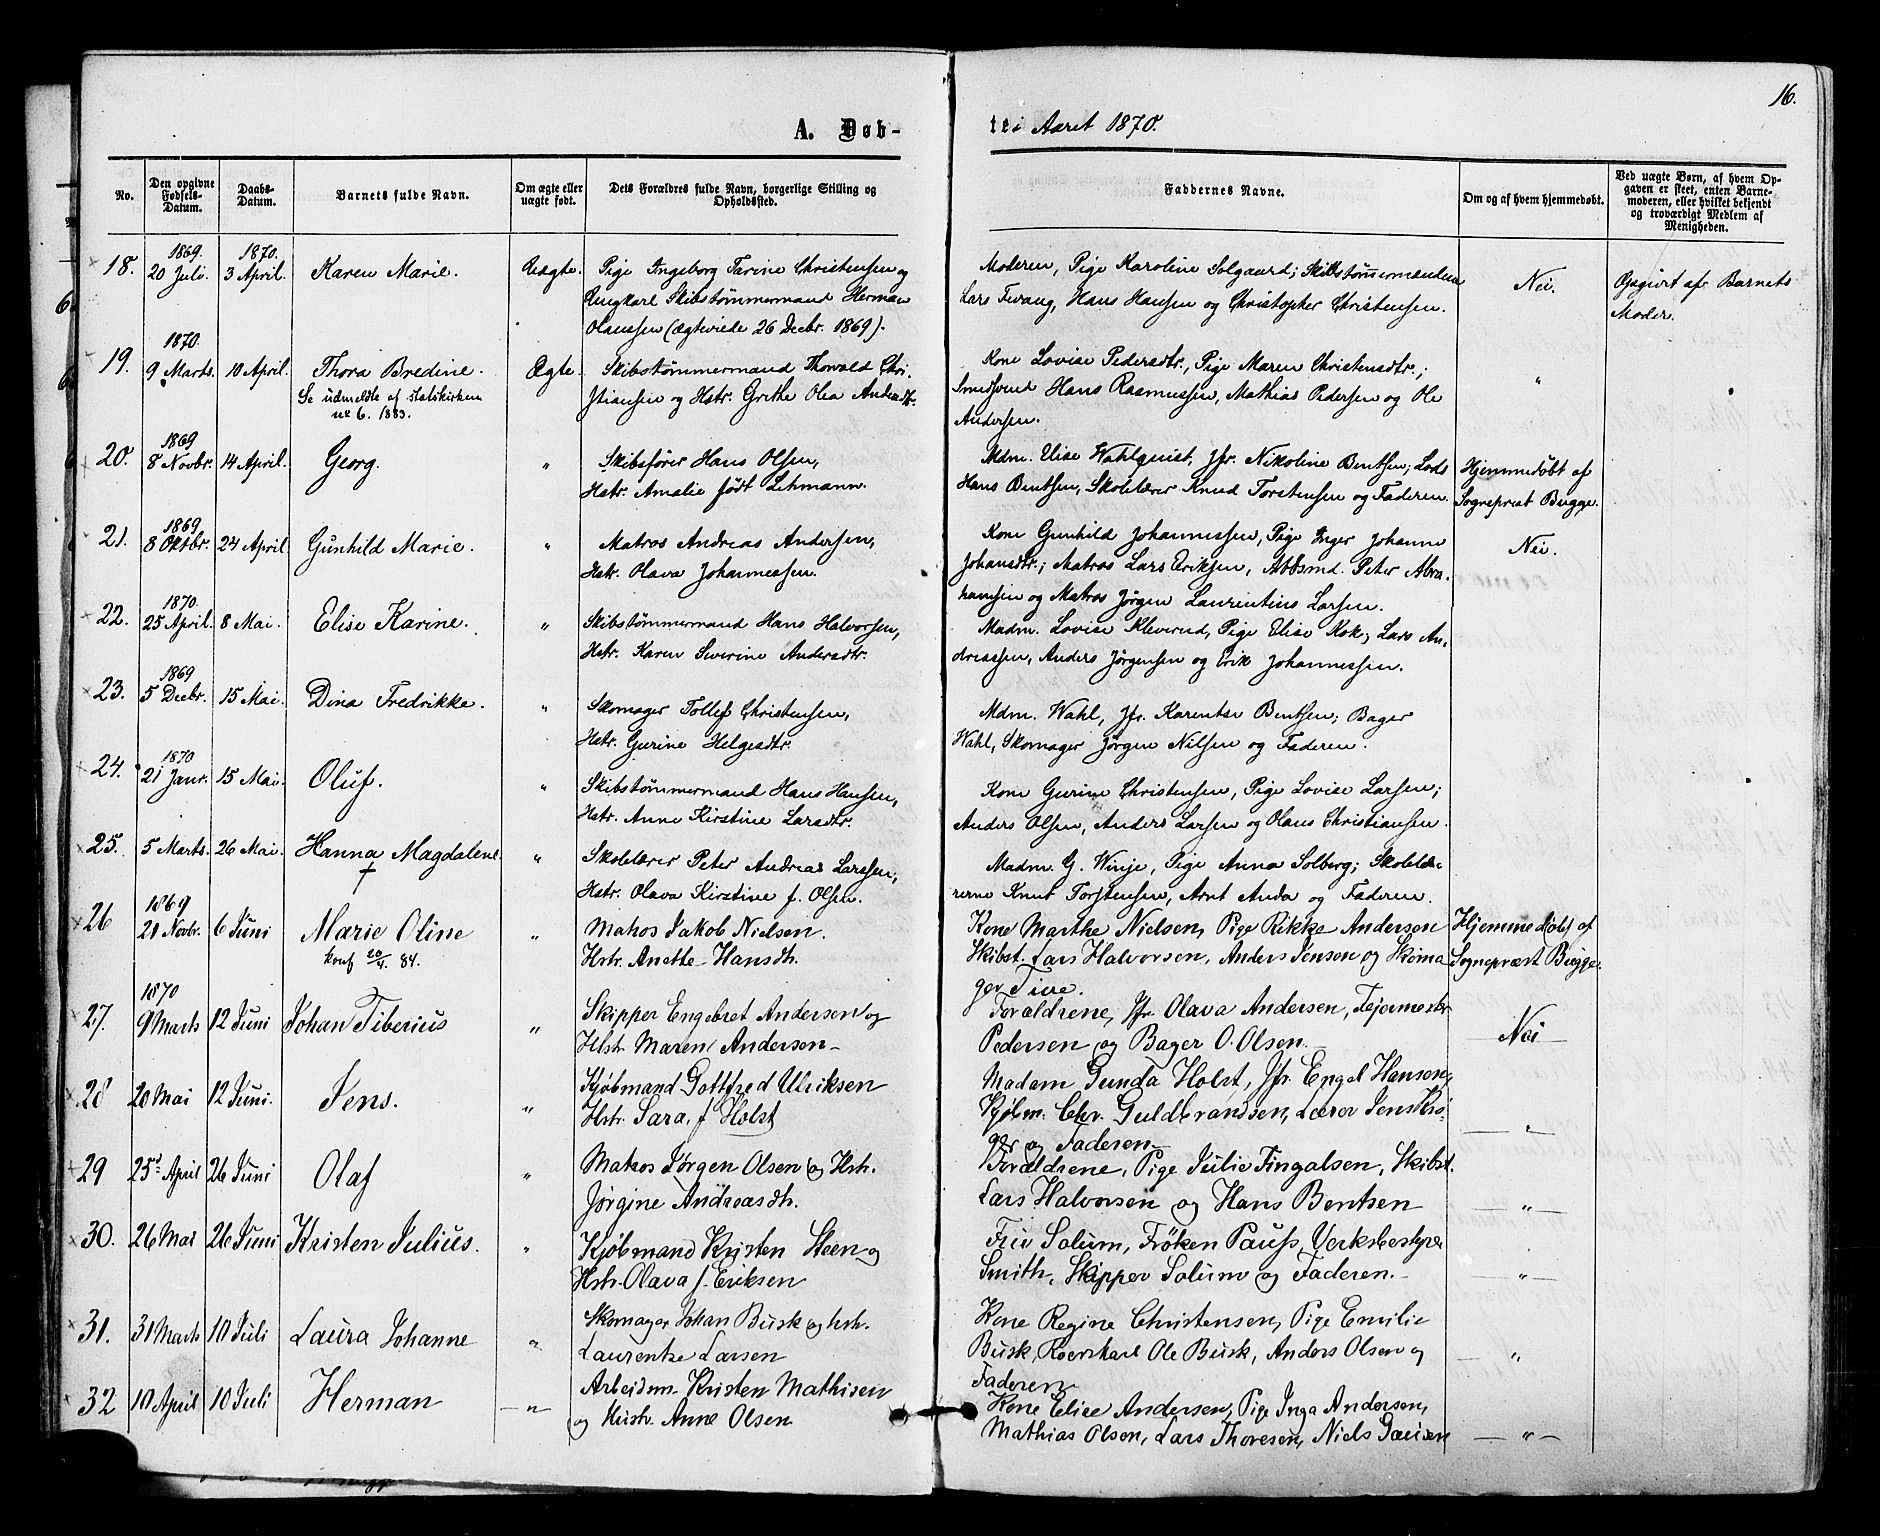 16.
A. Døb-
te i Aaret 1870.
No.
Den opgivne Fødsels-Datum.
Daabs-Datum.
Barnets fulde Navn.
Om ægte eller uægte født.
Dets Forældres fulde Navn, borgerlige Stilling og Opholdssted.
Faddernes Navne.
Om og af hvem hjemmedøbt.
Ved uægte Børn, af hvem Opgaven er skeet, enten Barnemoderen, eller hvilket bekjendt og troværdigt Medlem af Menigheden.
1869. 1870.
18. 20 Juli. 3 April. Karen Marie. Uægte. Pige Ingeborg Tarine Christensen og
Ungkarl Skibstømmermand Herman
Olaussen (ægteviede 26 Decbr. 1869).
Moderen, Pige Karoline Solgaard; Skibstømmermændene
Lars Tvang, Hans Hansen og Christopher Christensen.
Nei.
Opgivet af Barnets
Moder.
1870.
19. 9 Marts. 10 April. Thora Bredine. Ægte. Skibstømmermand Thorvald Chri-
Se udmeldte af statskirken
nr 6. 1883.
stiansen og Hstr. Grethe Olea Andersdtr.
Kone Lovise Pedersdtr., Pige Maren Christensdtr.;
Smedsvend Hans Rasmussen, Mathias Pedersen og Ole
Andersen.
"
1869
20. 8 Novbr. 14 April. Georg. " Skibsfører Hans Olsen,
Hstr. Amalie født Lehmann.
Mdm. Elise Wahlquist, Jfr. Nikoline Bentsen; Lods
Hans Bentsen, Skolelærer Knud Torstensen og Faderen.
Hjemmedøbt af
Sognepræst Bugge.
1869
21. 8 Oktbr. 24 April. Gunhild Marie. " Matros Andreas Andersen,
Hstr. Olava Johannessen.
Kone Gunhild Johannessen, Pige Inger Johanne
Johansdtr.; Matros Lars Eriksen, Arbsmd. Peter Abra-
hamsen og Matros Jørgen Laurentius Larsen.
Nei.
1870.
22. 25 April. 8 Mai. Elise Karine. " Skibstømmermand Hans Halvorsen,
Hstr. Karen Severine Andersdtr.
Madm. Lovise Kleverud, Pige Elise Kok; Lars An-
dreassen, Anders Jørgensen og Erik Johannessen.
1869
23. 5 Decbr. 15 Mai. Dina Fredrikke. " Skomager Tollef Christensen,
Hstr. Gurine Helgesdtr.
Mdm. Wahl, Jfr. Karentse Bentsen; Bager
Wahl, Skomager Jørgen Nilsen og Faderen.
1870
24. 21 Janr. 15 Mai. Oluf. " Skibstømmermand Hans Hansen,
Hstr. Anne Kirstine Larsdtr.
Kone Gurine Christensen, Pige Lovise Larsen;
Anders Olsen, Anders Larsen og Olaus Christiansen.
25. 5 Marts. 26 Mai. Hanna Magdalene. " Skolelærer Peter Andreas Larssen,
†
Hstr. Olava Kirstine f. Olsen.
Madm. G. Winje, Pige Anna Solberg; Skolelæ-
rerne Knut Torstensen, Arnt Anda og Faderen.
1869
26 21 Novbr. 6 Juni Marie Oline " Matros Jakob Nielsen.
konf 20/4. 84.
Hstr. Anette Hansdtr.
Kone Marthe Nielsen, Pige Rikke Andersen
Skibst. Lars Halvorsen, Anders Jensen og Skoma
ger Tiere.
Hjemmedøbt af
Sognepræst Bugge.
1870
27. 9 Marts 12 Juni Johan Tiberius " Skipper Engebret Andersen og
Hstr. Maren Andersen
Forældrene, Jfr. Olava Andersen, Fejermester
Pedersen og Bager O. Olsen.
Nei
28 20 Mai 12 Juni. Jens. " Kjøbmand Gottfred Ulriksen
Hstr. Sara, f Holst
Madam Gunda Holst, Jfr. Engel Hansen,
Kjøbm. Chr. Guldbrandsen, Lærer Jens Krø-
ger og Faderen
"
29 25d April 26 Juni Olaf " Matros Jørgen Olsen og Hstr.
Jørgine Andreasdtr.
Forældrene, Pige Julie Fingalsen, Skibst.
Lars Halvorsen og Hans Bentsen
"
30. 26 Mai 26 Juni Kristen Julius. " Kjøbmand Kristen Steen og
Hstr. Olava f. Eriksen
Fru Solum, Frøken Pauss, Verksbestyrer
Smith, Skipper Solum og Faderen.
"
31. 31 Marts 10 Juli Laura Johanne " Skomager Johan Busk og hstr.
Laurentze Larsen
Kone Regine Christensen, Pige Emilie
Busk, Ole Busk, Anders Olsen og
Faderen
"
32 10 April 10 Juli Herman " Arbeidsm. Kristen Mathisen
og Hustr. Anne Olsen
Kone Elise Andersen, Pige Inga Andersen,
Mathias Olsen, Lars Thoresen, Niels
"